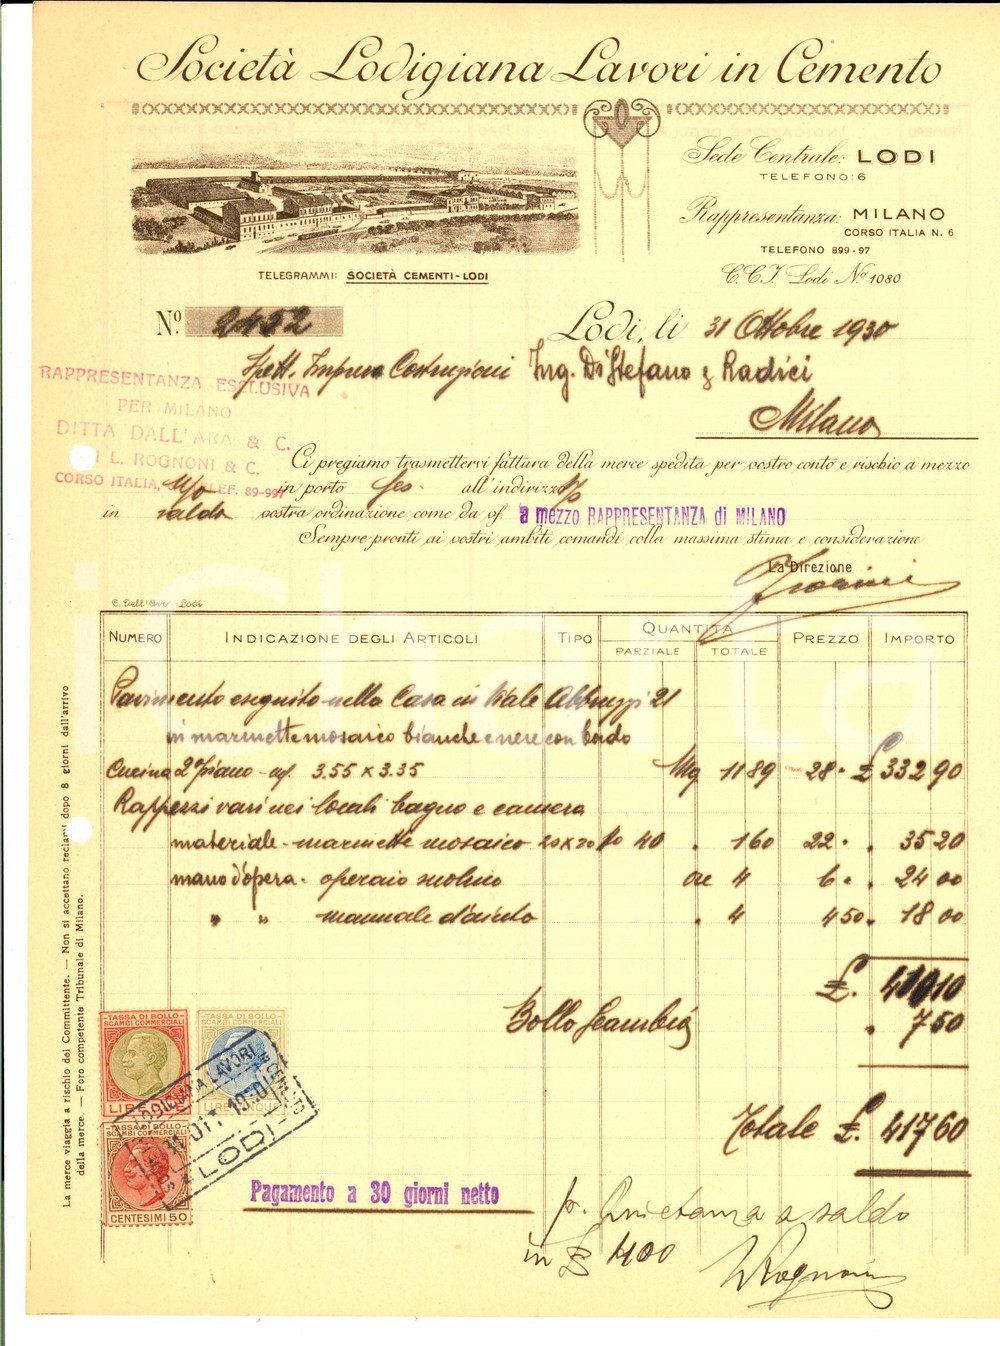 Società Lodigiana Lavori in Cemento
Sede Centrale: LODI
TELEFONO: 6
Rappresentanza: MILANO
CORSO ITALIA N. 6
TELEFONO 899-97
C.C.I. Lodi No 1080
TELEGRAMMI: SOCIETÀ CEMENTI-LODI
No. 2452
Lodi, li 31 Ottobre 1930
Spett. Impresa Costruzioni Ing. Di Stefano & Radici
Milano
RAPPRESENTANZA ESCLUSIVA
PER MILANO
DITTA DALL'ARA & C.
DI L. ROGNONI & C.
CORSO ITALIA, TELEF. 89-997
Ci pregiamo trasmettervi fattura della merce spedita per vostro conto e rischio a mezzo
in porto all'indirizzo
in saldo vostra ordinazione come da of. a mezzo RAPPRESENTANZA di MILANO
Sempre pronti ai vostri ambiti comandi colla massima stima e considerazione
La Direzione
C. Dell'Avo Lodi
NUMERO INDICAZIONE DEGLI ARTICOLI TIPO QUANTITÀ PREZZO IMPORTO
PARZIALE TOTALE
Pavimento eseguito nella Casa in Viale Abbruzzi 21
in marmette mosaico bianche e nere con bordo
Cucina 2° piano - mq. 3.55 x 3.35 Mq 11 89 28 - £ 332 90
Rappezzi vari nei locali bagno e camera
materiale - marmette mosaico 20x20 No 40 " 1 60 22 - " 35 20
mano d'opera - operaio ore 4 6 - " 24 00
" " manuale d'aiuto " 4 4 50 " 18 00
£. 410 10
Bollo Scambio " 7 50
Totale £. 417 60
TASSA DI BOLLO
SCAMBI COMMERCIALI
LIRE DUE
TASSA DI BOLLO
SCAMBI COMMERCIALI
LIRE CINQUE
TASSA DI BOLLO
SCAMBI COMMERCIALI
CENTESIMI 50
LODIGIANA LAVORI
31 OTT. 1930
LODI
Pagamento a 30 giorni netto
p. Quietanza a saldo
in £ 400
L Rognoni
La merce viaggia a rischio del Committente. — Non si accettano reclami dopo 8 giorni dall'arrivo
della merce. — Foro competente Tribunale di Milano.